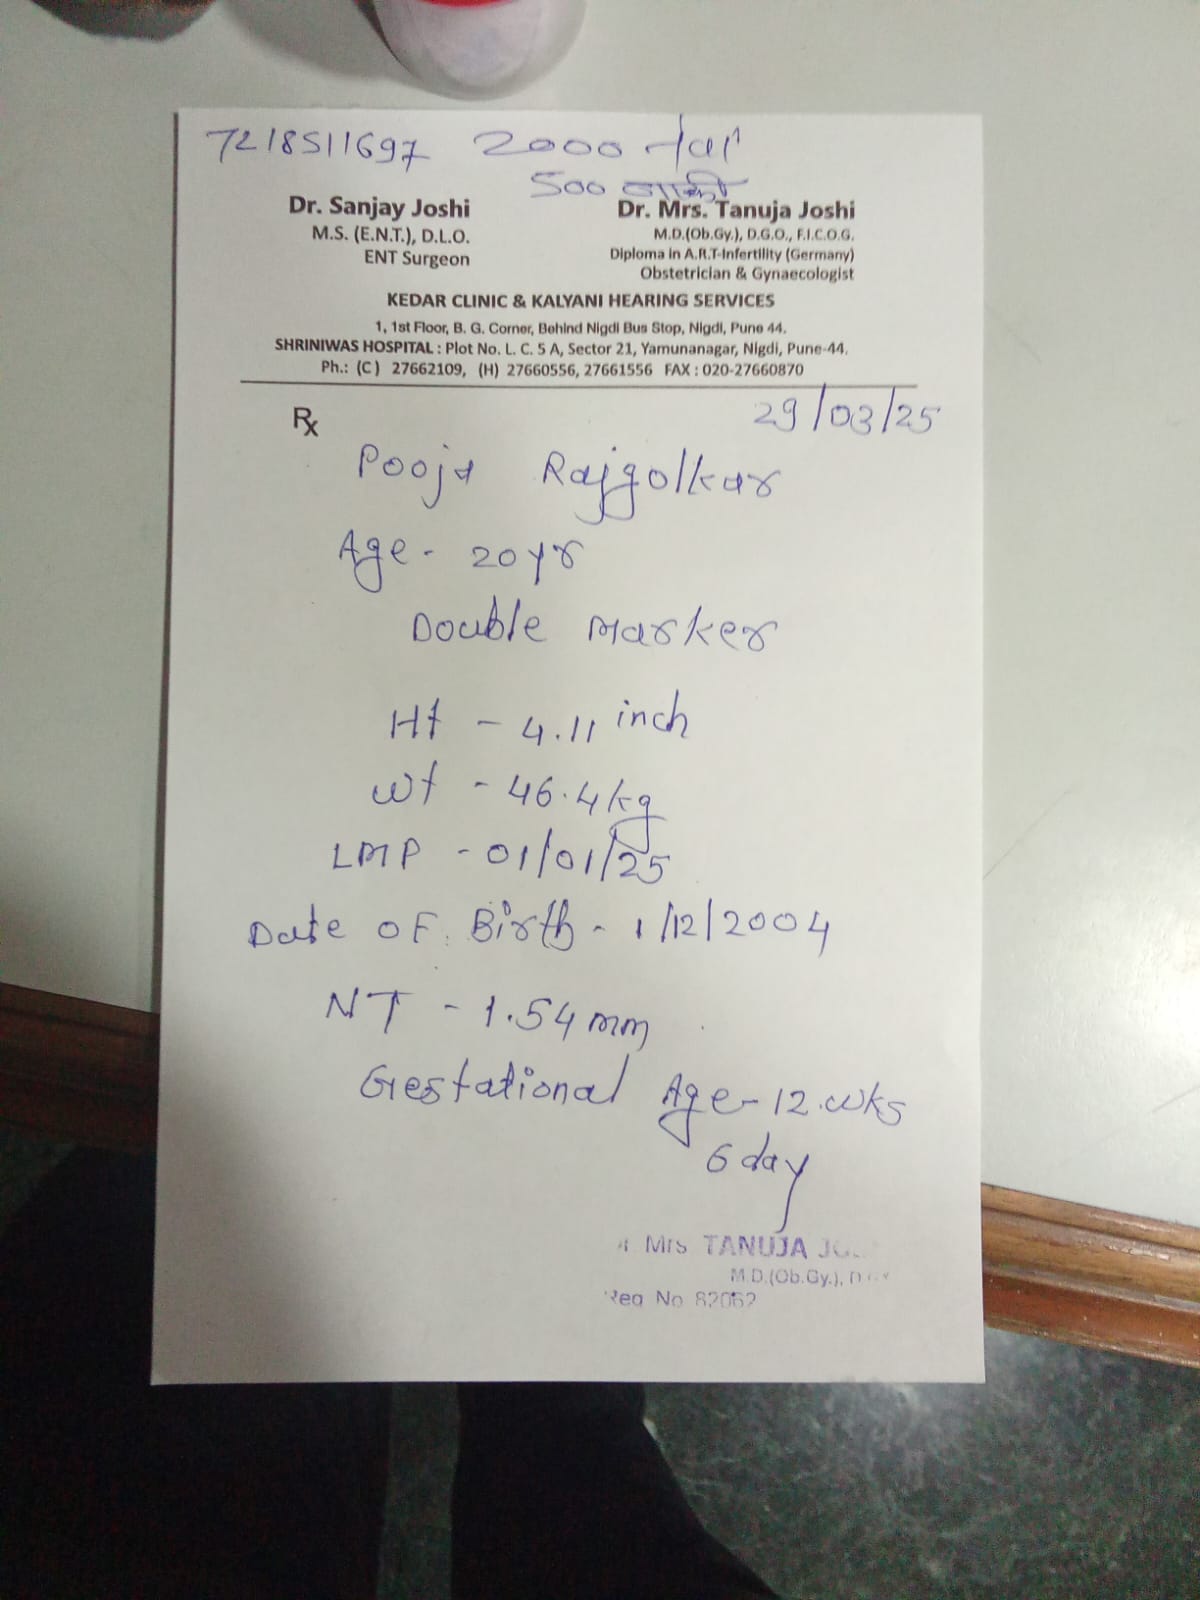 7218511697 2000
500 बाकी
Dr. Sanjay Joshi
M.S. (E.N.T.), D.L.O.
ENT Surgeon
Dr. Mrs. Tanuja Joshi
M.D.(Ob.Gy.), D.G.O., F.I.C.O.G.
Diploma in A.R.T-Infertility (Germany)
Obstetrician & Gynaecologist
KEDAR CLINIC & KALYANI HEARING SERVICES
1, 1st Floor, B. G. Corner, Behind Nigdi Bus Stop, Nigdi, Pune 44.
SHRINIWAS HOSPITAL : Plot No. L. C. 5 A, Sector 21, Yamunanagar, Nigdi, Pune-44.
Ph.: (C) 27662109, (H) 27660556, 27661556 FAX : 020-27660870
℞
29/03/25
Pooja Rajgolkar
Age - 20yr
Double marker
Ht - 4.11 inch
wt - 46.4kg
LMP - 01/01/25
Date of Birth - 1/12/2004
NT - 1.54mm
Gestational Age - 12.wks
6 day
Mrs TANUJA
M.D.(Ob.Gy.),
Reg No 82052